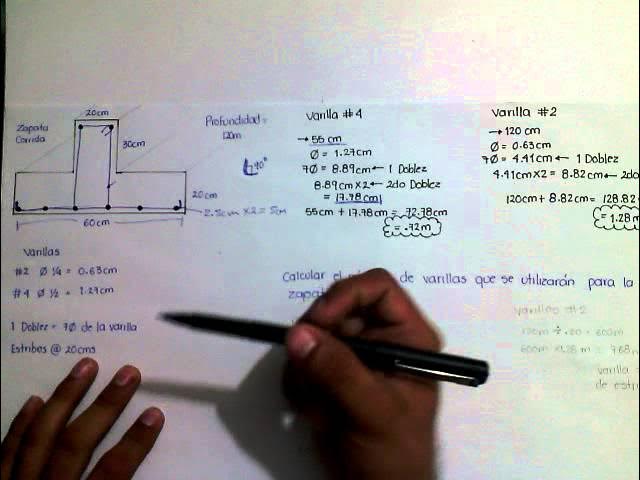 20cm
Zapata
Corrida
30cm
Profundidad =
120m
90°
20cm
2.5cm x2 = 5cm
60cm
Varillas
#2 Ø ¼ = 0.63cm
#4 Ø ½ = 1.27cm
1 Doblez = 7Ø de la varilla
Estribos @ 20cms
Varilla #4
→ 55 cm
Ø = 1.27cm
7Ø = 8.89cm ← 1 Doblez
8.89cm x2 ← 2do Doblez
= 17.78cm
55cm + 17.78cm = 72.78cm
= .72m
Varilla #2
→ 120 cm
Ø = 0.63cm
7Ø = 4.41cm ← 1 Doblez
4.41cm x2 = 8.82cm ← 2do
120cm + 8.82cm = 128.82
= 1.28m
Calcular el de varillas que se utilizarán para la
Varillas #2
120m ÷ .20 = 600m
600m x 1.28m = 768m
varilla
de estri